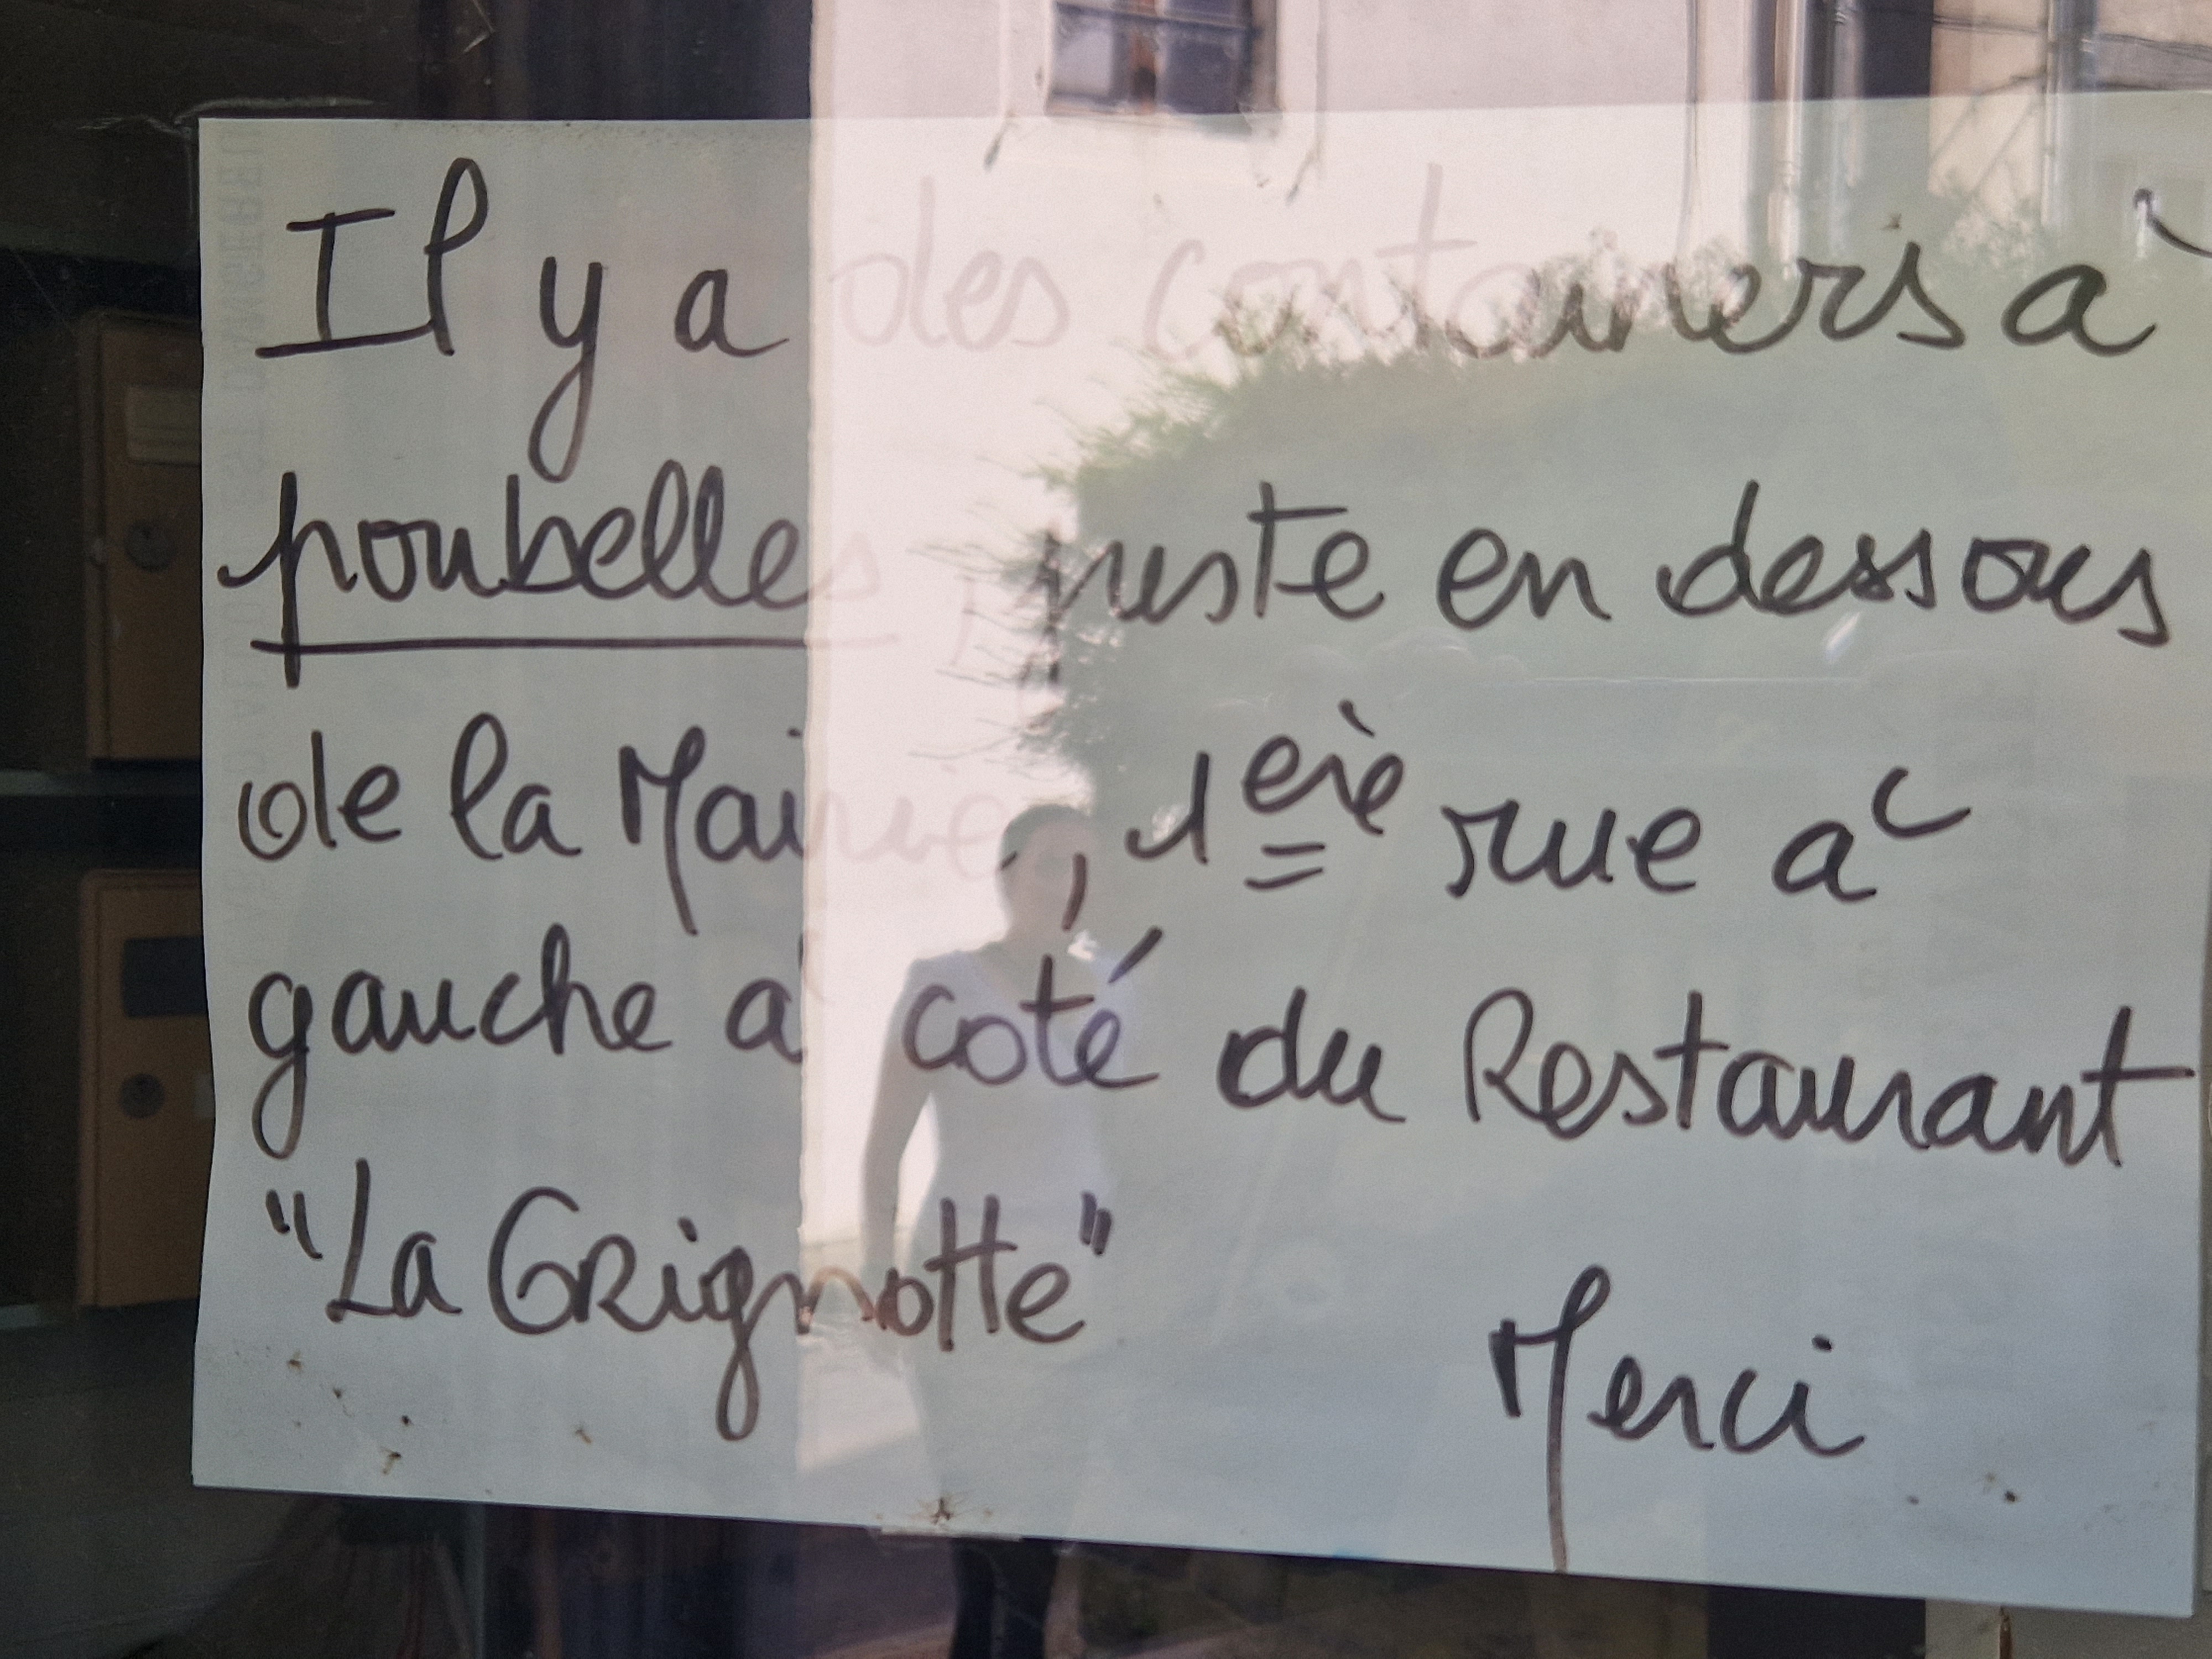 Il y a des containers à
poubelles juste en dessous
de la Mairie, 1ère rue à
gauche à coté du Restaurant
"La GRignotte"
Merci